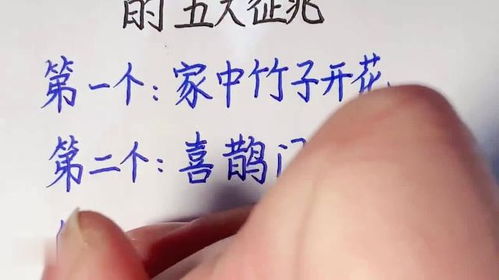 的五大征兆
第一个：家中竹子开花
第二个：喜鹊门